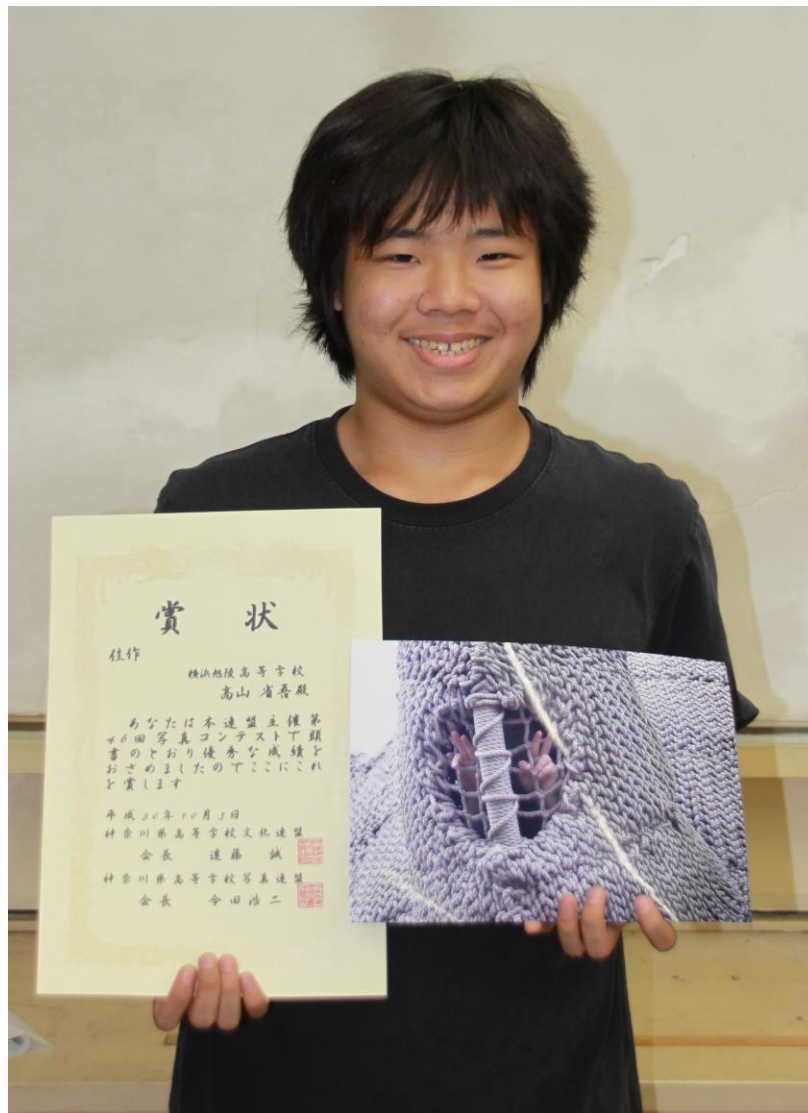 賞 状
佳作
横浜旭陵高等学校
高山 省吾殿
あなたは本連盟主催第
46回写真コンテストで頭
書のとおり優秀な成績を
おさめましたのでここにこれ
を賞します
平成30年10月3日
神奈川県高等学校文化連盟
会長 遠藤 誠
神奈川県高等学校写真連盟
会長 今田浩二